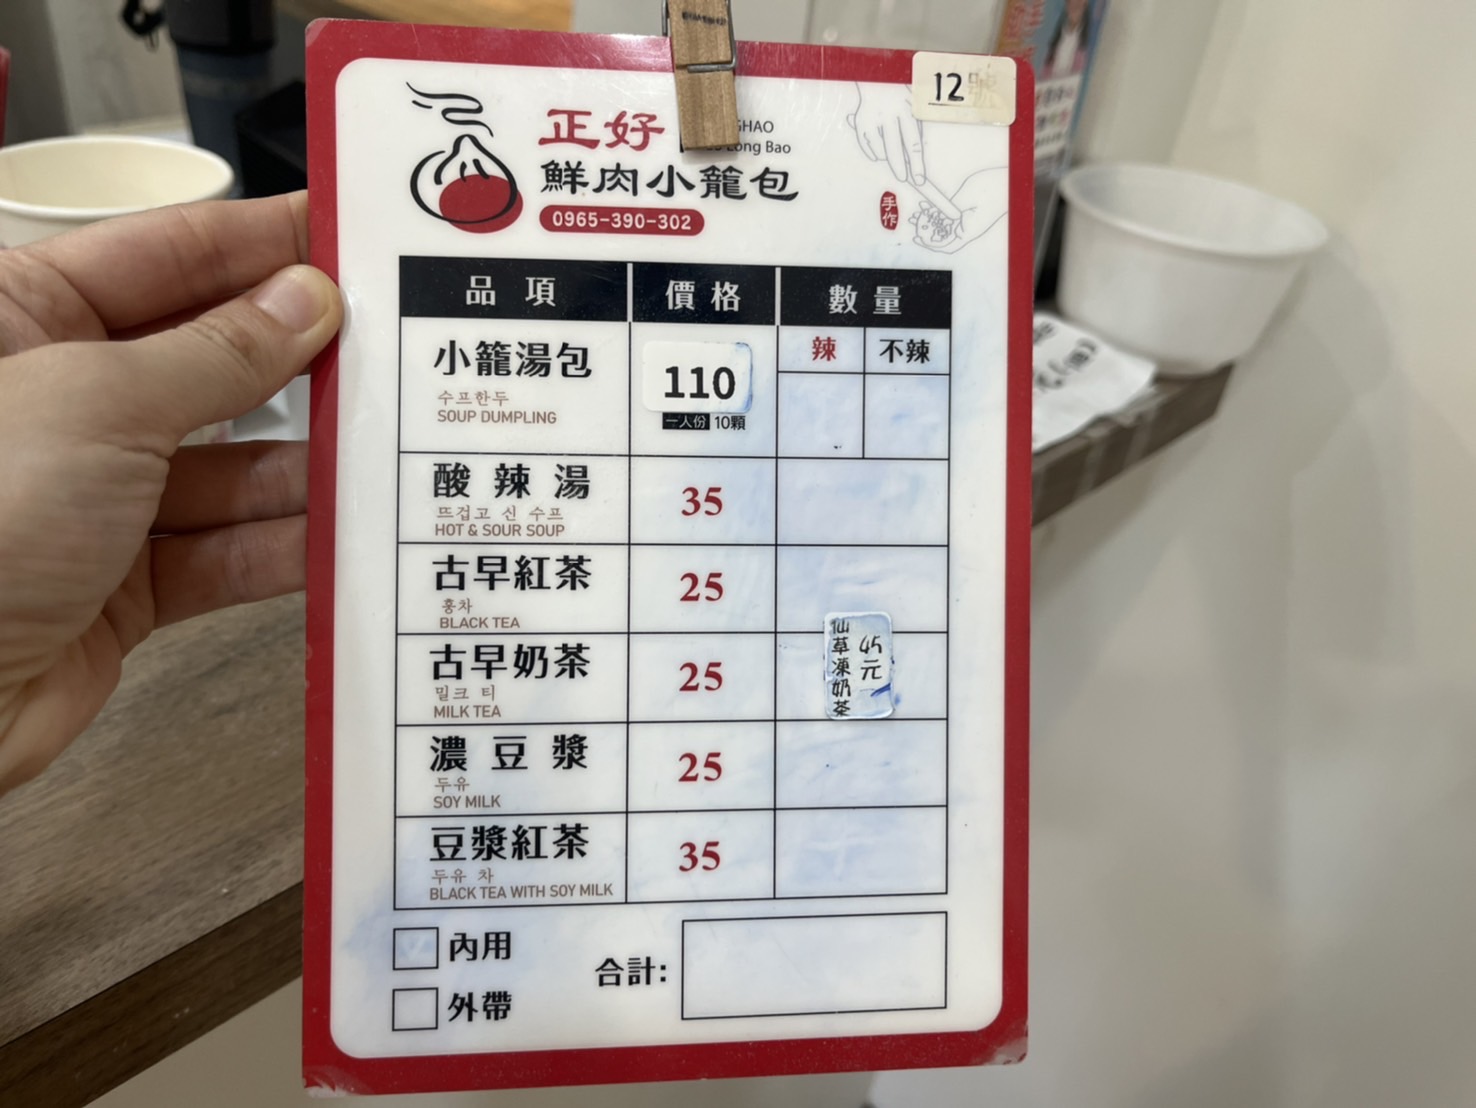 12號
正好
GHAO
Long Bao
鮮肉小籠包
0965-390-302
手作
品項 價格 數量
小籠湯包 110 辣 不辣
수프한두
SOUP DUMPLING
一人份 10顆
酸辣湯 35
뜨겁고 신 수프
HOT & SOUR SOUP
古早紅茶 25
홍차
BLACK TEA
古早奶茶 25
밀크 티
MILK TEA
仙草凍奶茶
45元
濃豆漿 25
두유
SOY MILK
豆漿紅茶 35
두유 차
BLACK TEA WITH SOY MILK
內用
合計:
外帶